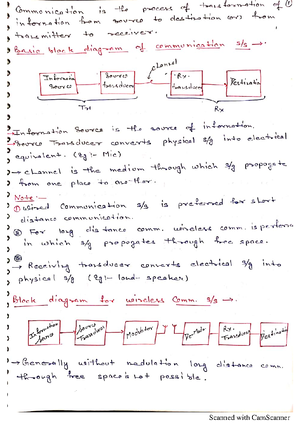 Communication is the process of transformation of ①
information from source to destination (or) from
transmitter to receiver.
Basic block diagram of communication s/s →.
channel
Information Source
Source transducer
Rx. Transducer
Destination
Txr
Rx
→ Information Source is the source of information.
→ Source Transducer converts physical s/g into electrical
equivalent. (Eg:- Mic)
→ channel is the medium through which s/g propagate
from one place to another.
Note:-
① Wired Communication s/s is preferred for short
distance communication.
② For long distance comm. wireless comm. is perform
in which s/g propagates through free space.
→ Receiving transducer converts electrical s/g into
physical s/g (Eg:- loud-speaker)
Block diagram for wireless Comm. s/s →.
Information Source
Source Transducer
Modulator
Rx. Transducer
Destination
→ Generally without modulation long distance comm.
through free space is not possible.
Scanned with CamScanner